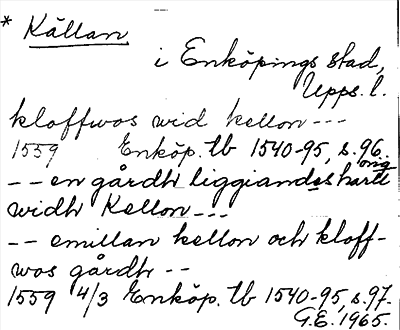 * Källan
i Enköpings stad,
Upps. l.
kloffwos wid kellon ---
1559 Enköp. tb 1540-95, s. 96.
-- en gårdh liggiandes hardt
widh Kellon ---
-- emillan kellon och kloff-
wos gårdh --
1559 4/3 Enköp. tb 1540-95, s. 97.
G.E. 1965.